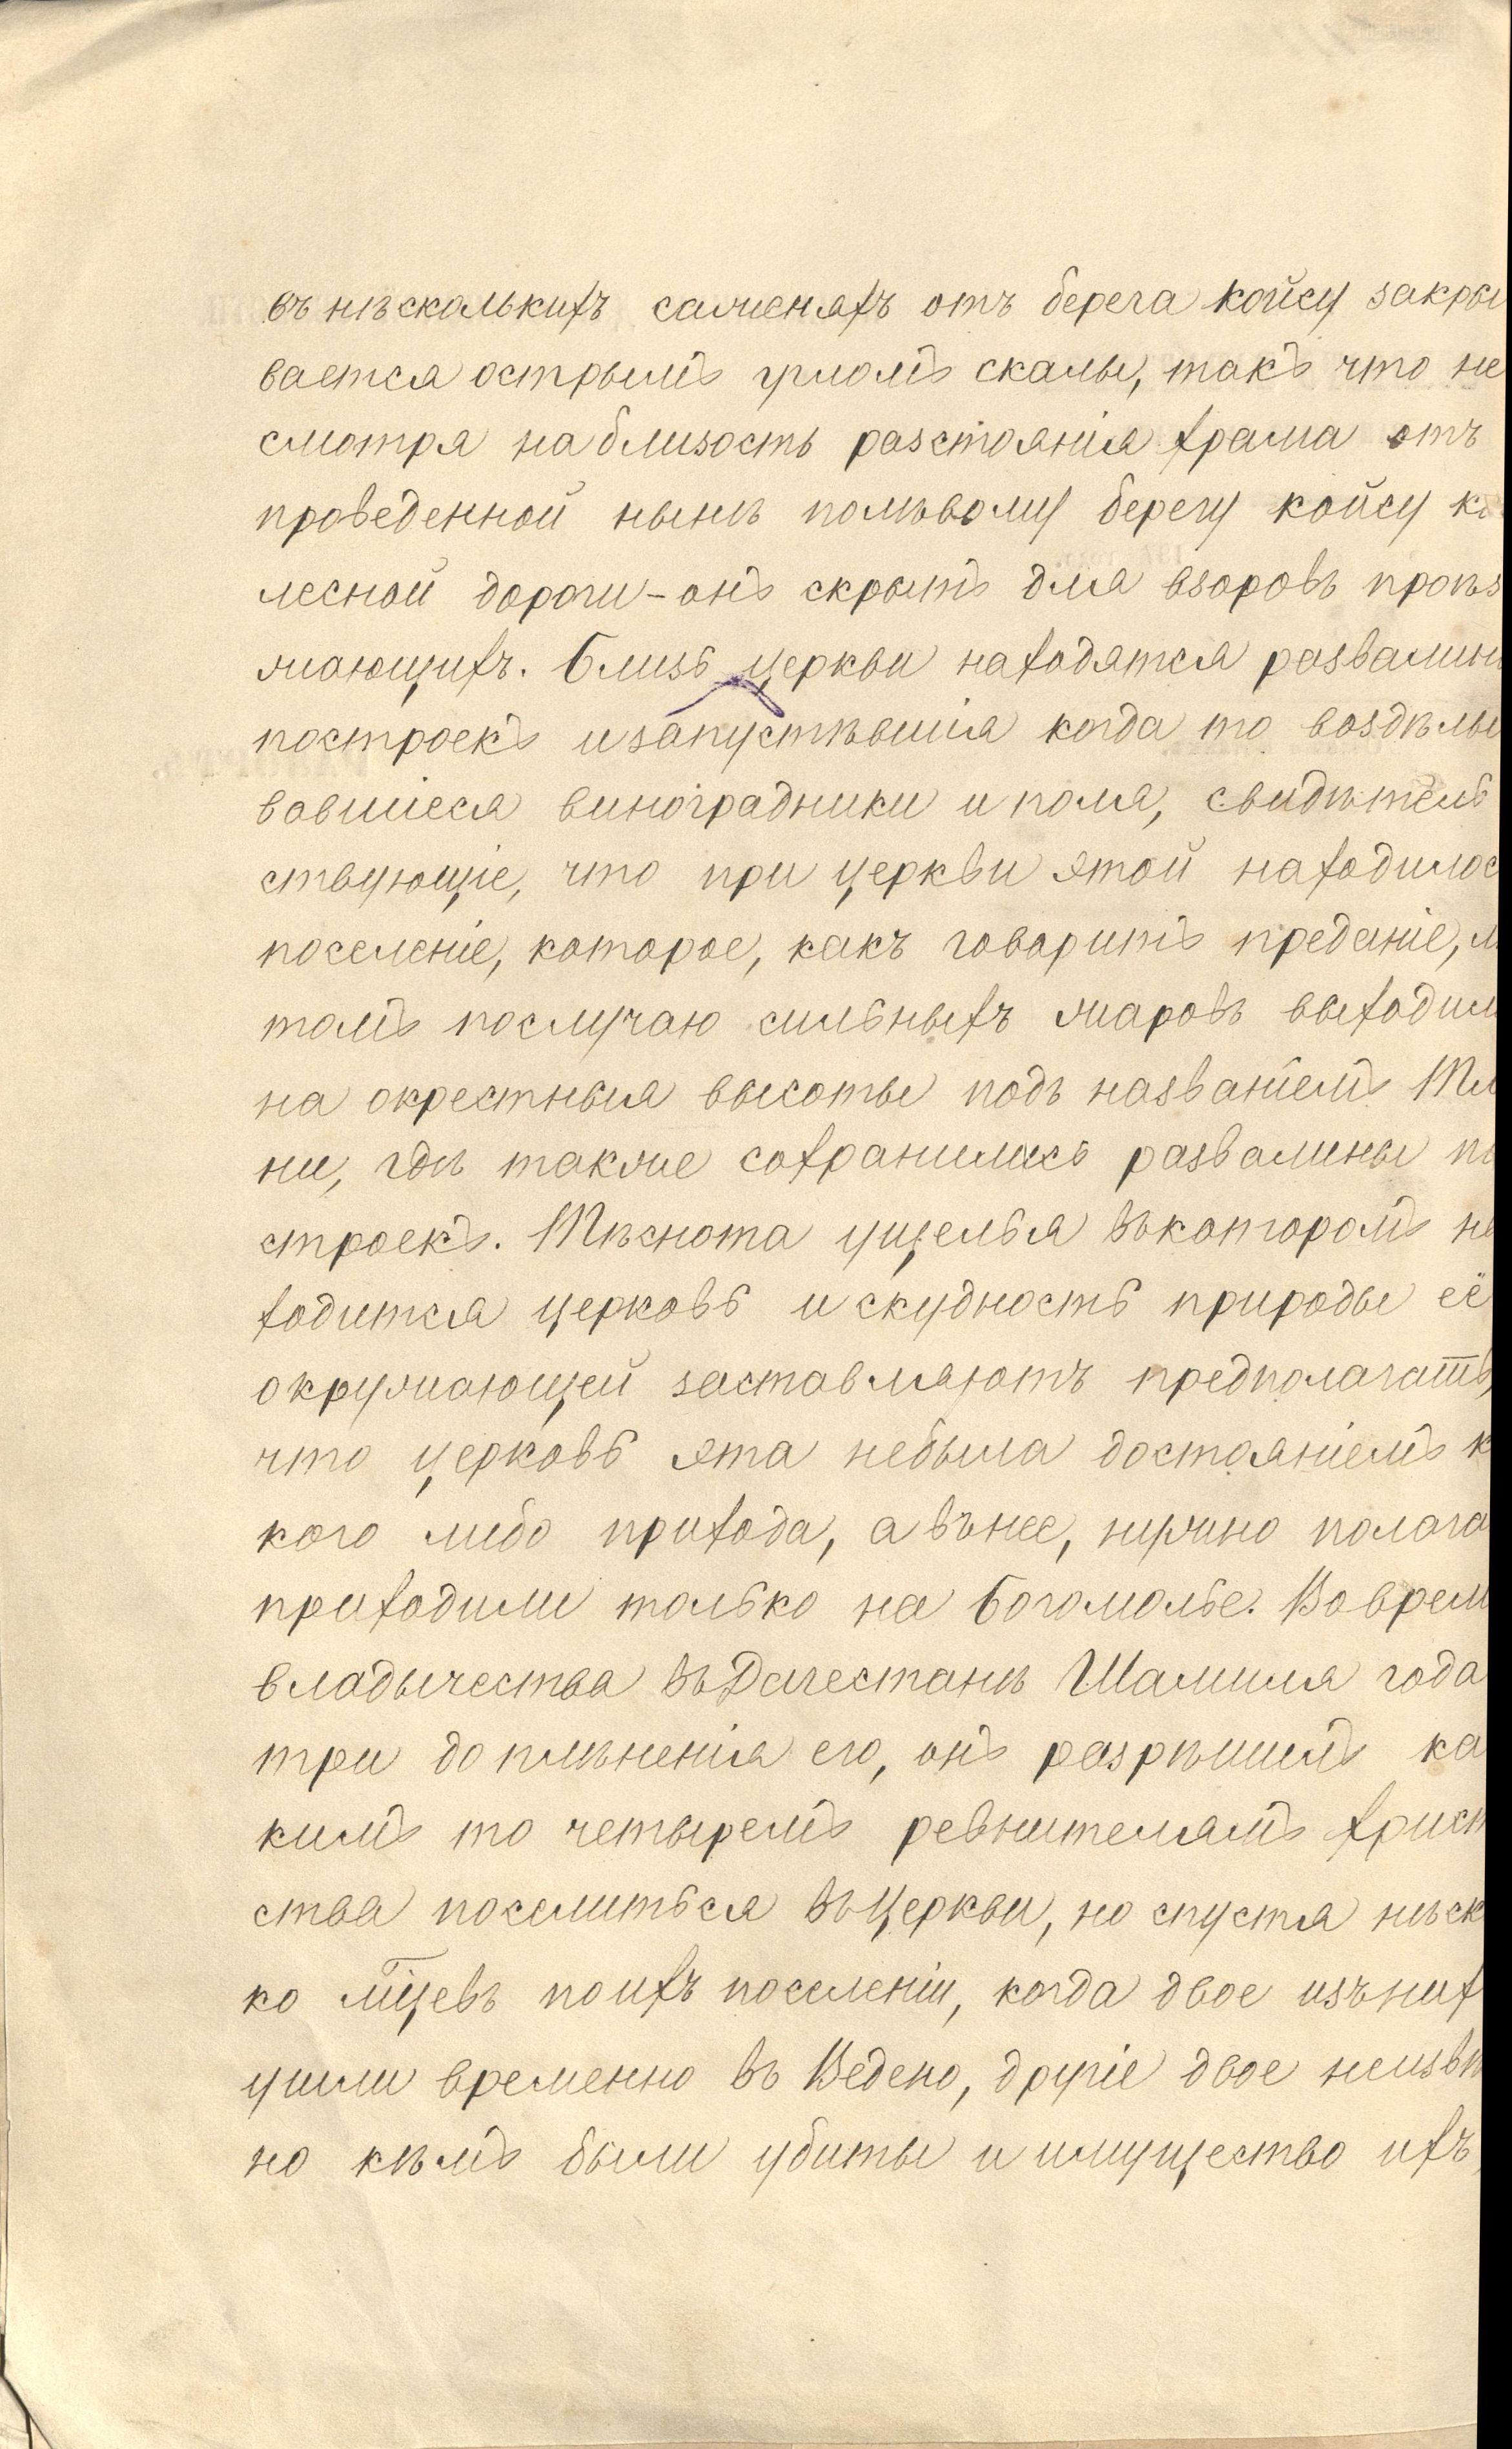 въ нѣсколькихъ саженяхъ отъ берега койсу закры
вается острымъ угломъ скалы, такъ что не
смотря на близость разстоянія храма отъ
проведенной нынѣ полѣвому берегу койсу ко
лесной дороги - онъ скрытъ для взоровъ проѣз
жающихъ. Близь церкви находятся развалины
построекъ и запустѣвшія когда то воздѣлы
вовшіеся виноградники и поля, свидѣтель
ствующіе, что при церкви этой находилос
поселеніе, которое, какъ говоритъ преданіе, л
томъ послучаю сильныхъ жаровъ выходил
на окрестныя высоты подъ названіемъ Тл
ни, гдѣ также сохранились развалины по
строекъ. Тѣснота ущелья въ которомъ на
ходится церковь и скудность природы её
окружающей заставляютъ предполагать,
что церковь эта небыла достояніемъ к
кого либо прихода, а вънее, нужно полага
приходили только на богомолье. Во врем
владычества въ Дагестанѣ Шамиля года
три до плѣненія его, онъ разрѣшилъ ка
кимъ то четыремъ ревнителямъ христ
ства поселиться въ Церкви, но спустя нѣск
ко мцевъ поихъ поселеніи, когда двое изъ них
ушли временно въ Ведено, другіе двое неизвѣ
но кѣмъ были убиты и имущество ихъ,